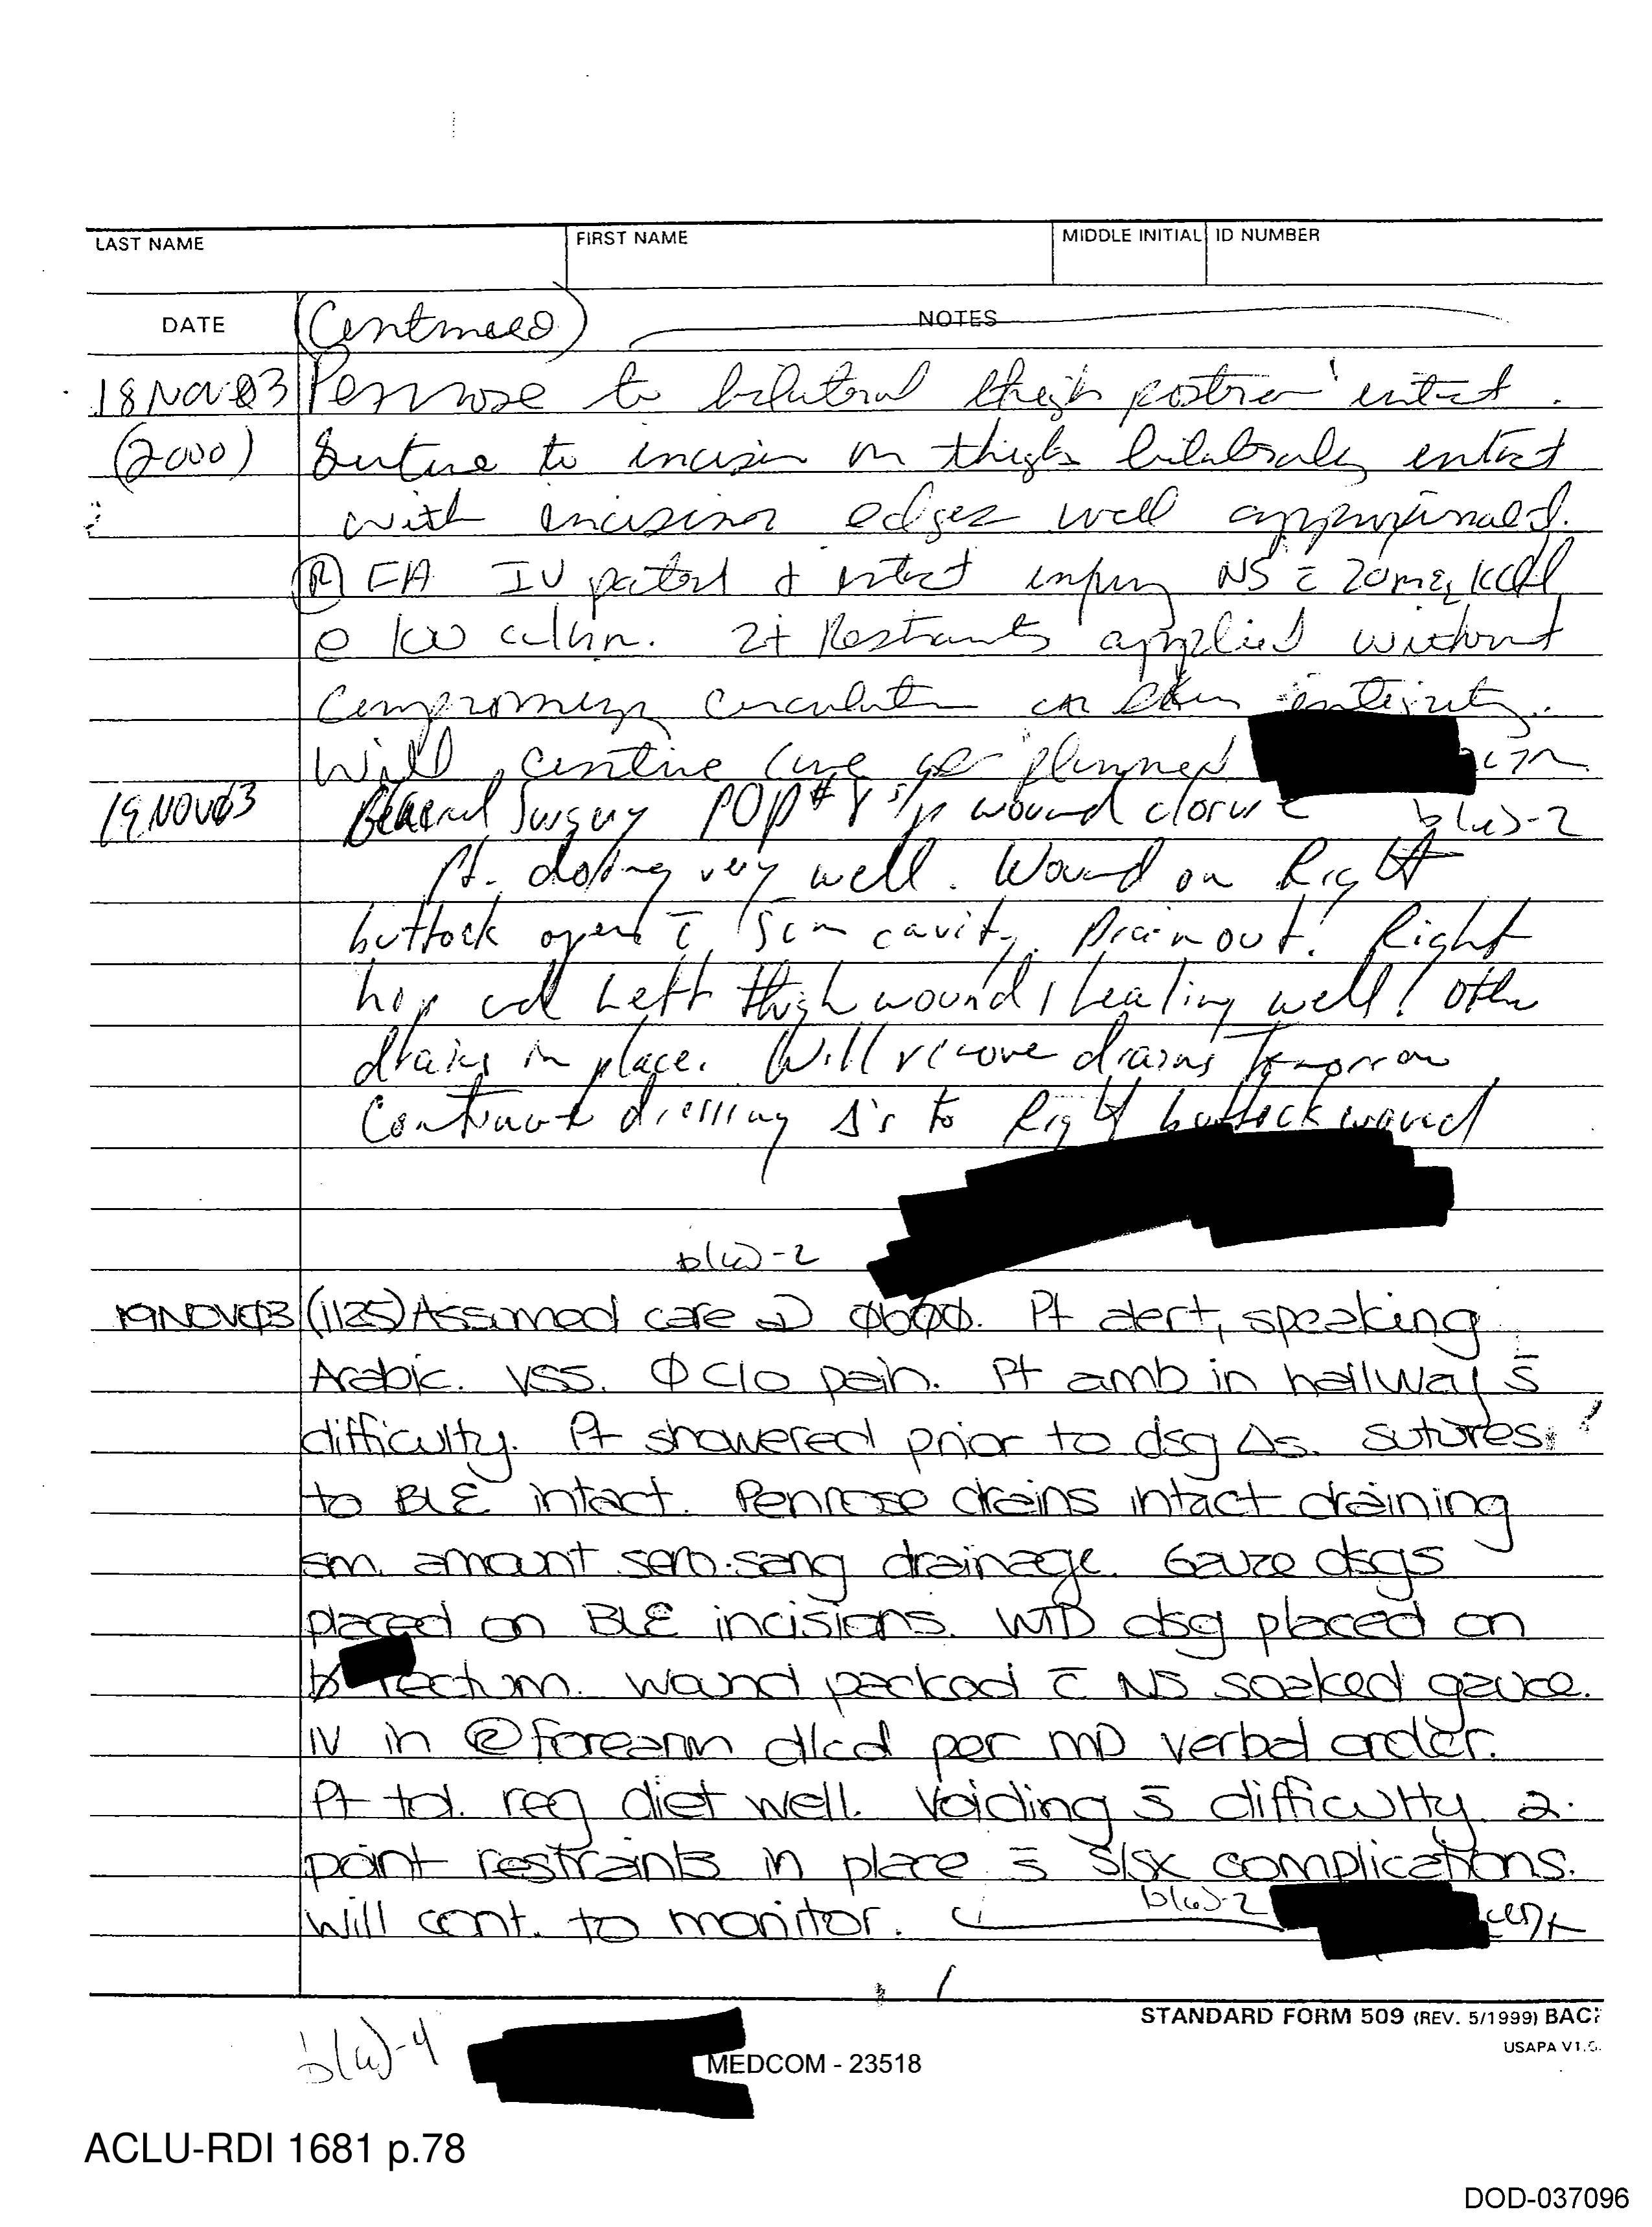 LAST NAME FIRST NAME MIDDLE INITIAL ID NUMBER
DATE (Continued) NOTES
18 NOV 03 Penrose to bilateral thigh posterior intact.
(2000) Suture to incision on thighs bilaterally intact
with incision edges well approximated.
Ⓡ FA IV patent & intact infusing NS c̄ 20 meq kcl/l
@ 100 cc/hr. 2+ Restraints applied without
compromizing circulation or skin integrity.
Will continue care as planned
19 NOV 03 General Surgery POD # 8 s/p wound closure b(6)-2
Pt. doing very well. Wound on Right
buttock open c̄ 5cm cavity. Drain out! Right
hip and Left thigh wounds healing well! Other
drains in place. Will remove drains tomorrow
Continue dressing Δ's to Right buttock wound
b(6)-2
19NOV03 (1125) Assumed care @ 0600. Pt alert, speaking
Arabic. VSS. Ø c/o pain. Pt amb in hallway s̄
difficulty. Pt showered prior to dsg Δs. Sutures
to BLE intact. Penrose drains intact draining
sm. amount sero-sang drainage. Gauze dsgs
placed on BLE incisions. WTD dsg placed on
rectum. Wound packed c̄ NS soaked gauze.
IV in Ⓡ forearm d/cd per MD verbal order.
Pt tol. reg diet well. Voiding s̄ difficulty. 2-
point restraints in place s̄ s/sx complications.
Will cont. to monitor. b(6)-2
STANDARD FORM 509 (REV. 5/1999) BACK
USAPA V1.0
b(6)-4
MEDCOM - 23518
ACLU-RDI 1681 p.78
DOD-037096